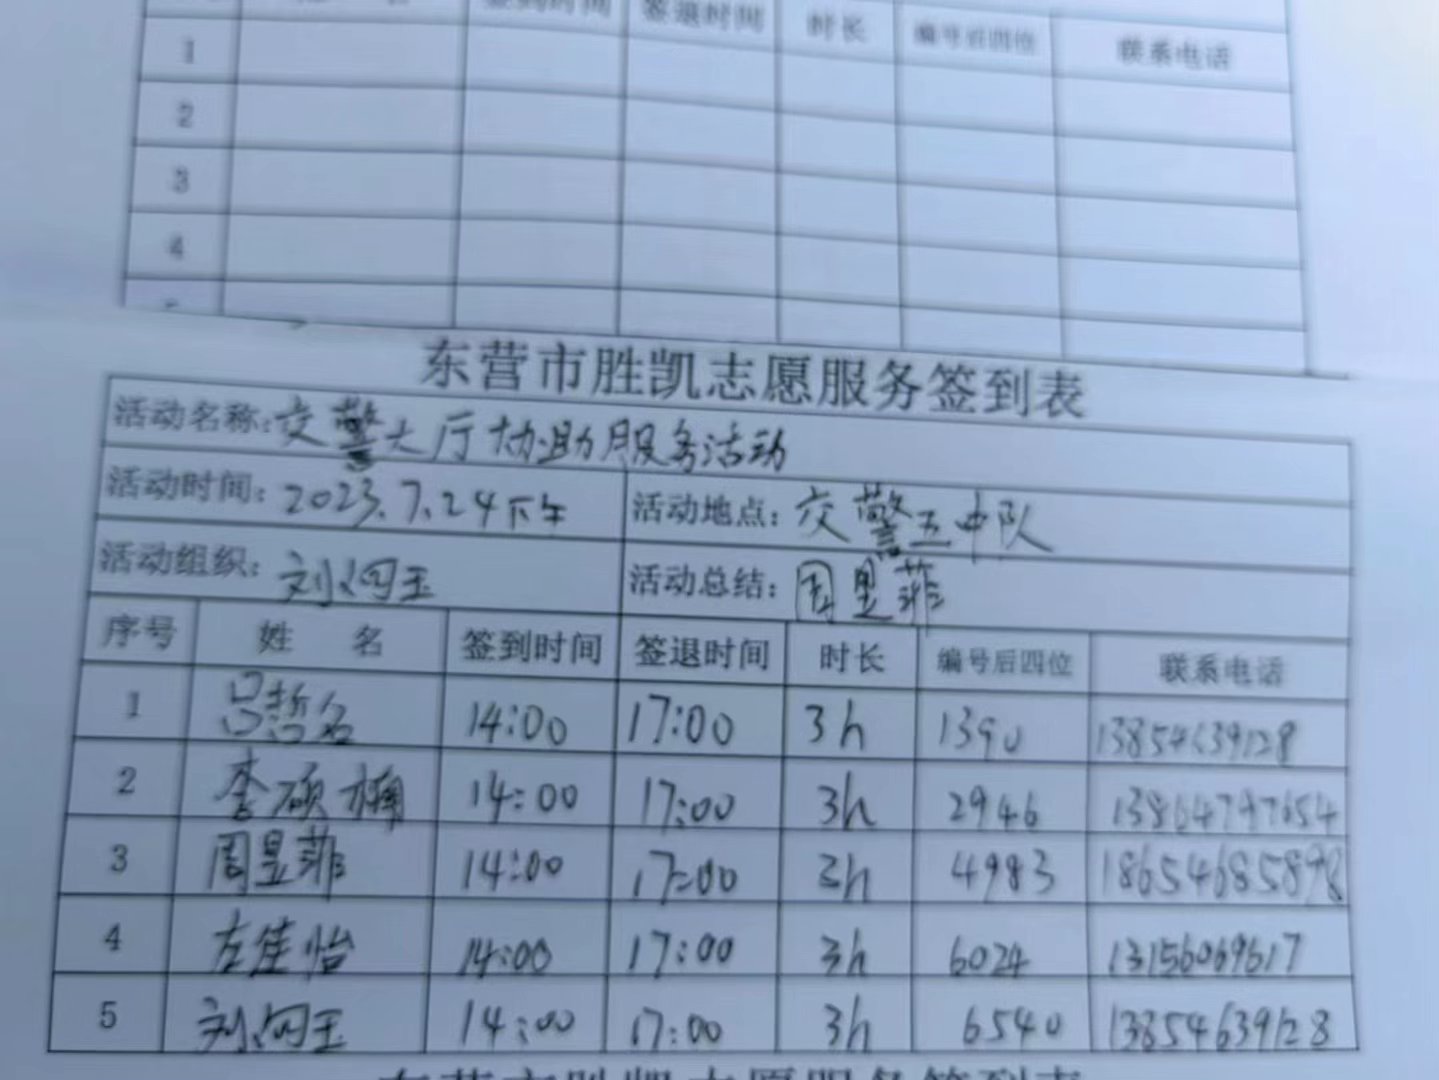 签到时间 签退时间 时长 编号后四位 联系电话
1
2
3
4
东营市胜凯志愿服务签到表
活动名称:交警大厅协助服务活动
活动时间:2023.7.24下午 活动地点:交警五中队
活动组织:刘沟玉 活动总结:周昱菲
序号 姓 名 签到时间 签退时间 时长 编号后四位 联系电话
1 吕哲名 14:00 17:00 3h 1390 13854639128
2 李硕楠 14:00 17:00 3h 2946 13864797654
3 周昱菲 14:00 17:00 3h 4983 18654685898
4 左佳怡 14:00 17:00 3h 6024 13156069617
5 刘沟玉 14:00 17:00 3h 6540 13854639128
东营市胜凯志愿服务签到表